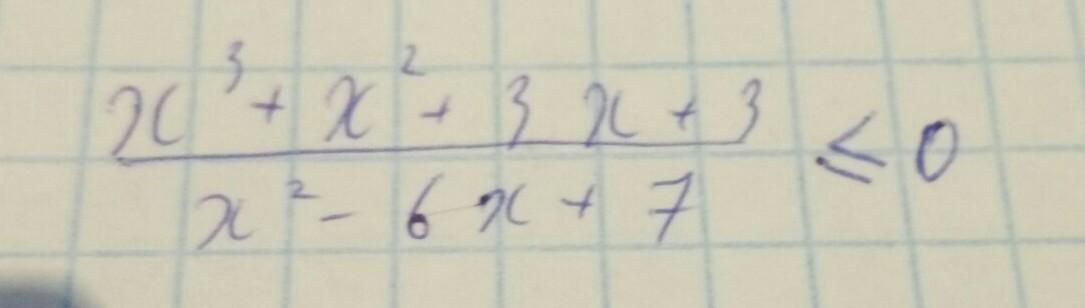 x³ + x² + 3x + 3 ≤ 0
x² - 6x + 7